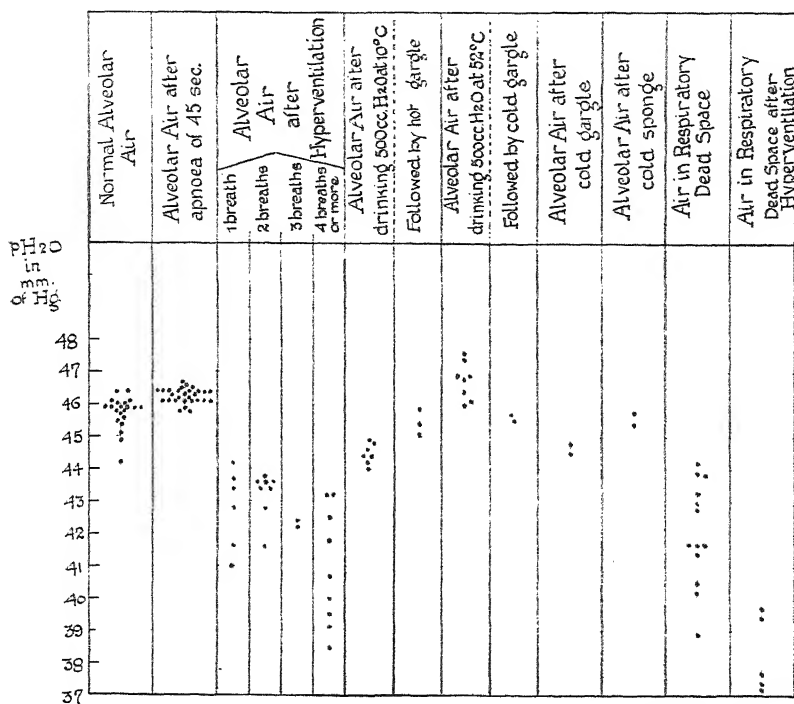 Normal Alveolar
Air
Alveolar Air after
apnoea of 45 sec.
Alveolar
Air
after
Hyperventilation
1 breath
2 breaths
3 breaths
4 breaths
or more
Alveolar Air after
drinking 500cc.H2O at 10°C
Followed by hot gargle
Alveolar Air after
drinking 500cc.H2O at 52°C
Followed by cold gargle
Alveolar Air after
cold gargle
Alveolar Air after
cold sponge
Air in Respiratory
Dead Space
Air in Respiratory
Dead Space after
Hyperventilation
pH2O
in
mm.
of Hg.
48
47
46
45
44
43
42
41
40
39
38
37